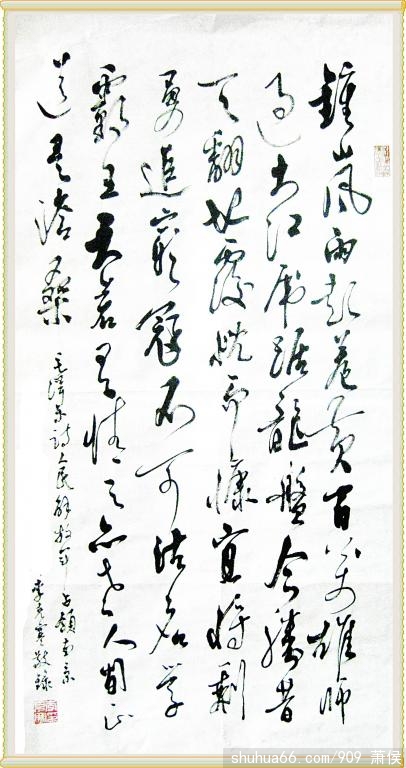 鍾山風雨起蒼黄百万雄师
过大江虎踞龍盤今勝昔
天翻地覆慨而慷宜将剩
勇追窮寇不可沽名学
霸王天若有情天亦老人間正
道是滄桑
毛澤东詩人民解放军占領南京
李 敬録
shuhua66.com/909 萧侯